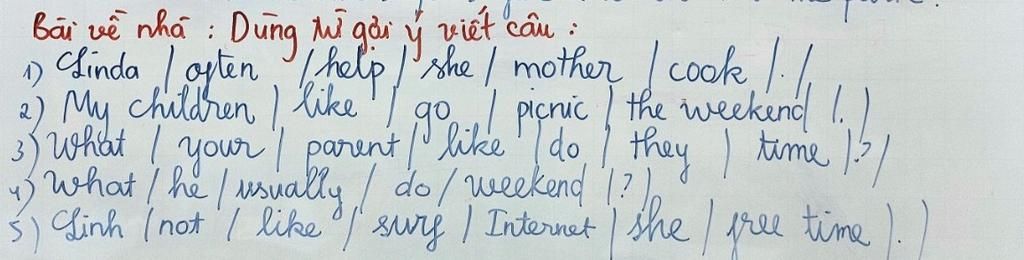 Bài về nhà : Dùng từ gợi ý viết câu :
1) Linda / often / help / she / mother / cook / . /
2) My children / like / go / picnic / the weekend / . /
3) What / your / parent / like / do / they / time / ? /
4) What / he / usually / do / weekend / ? /
5) Linh / not / like / surf / Internet / she / free time / . /